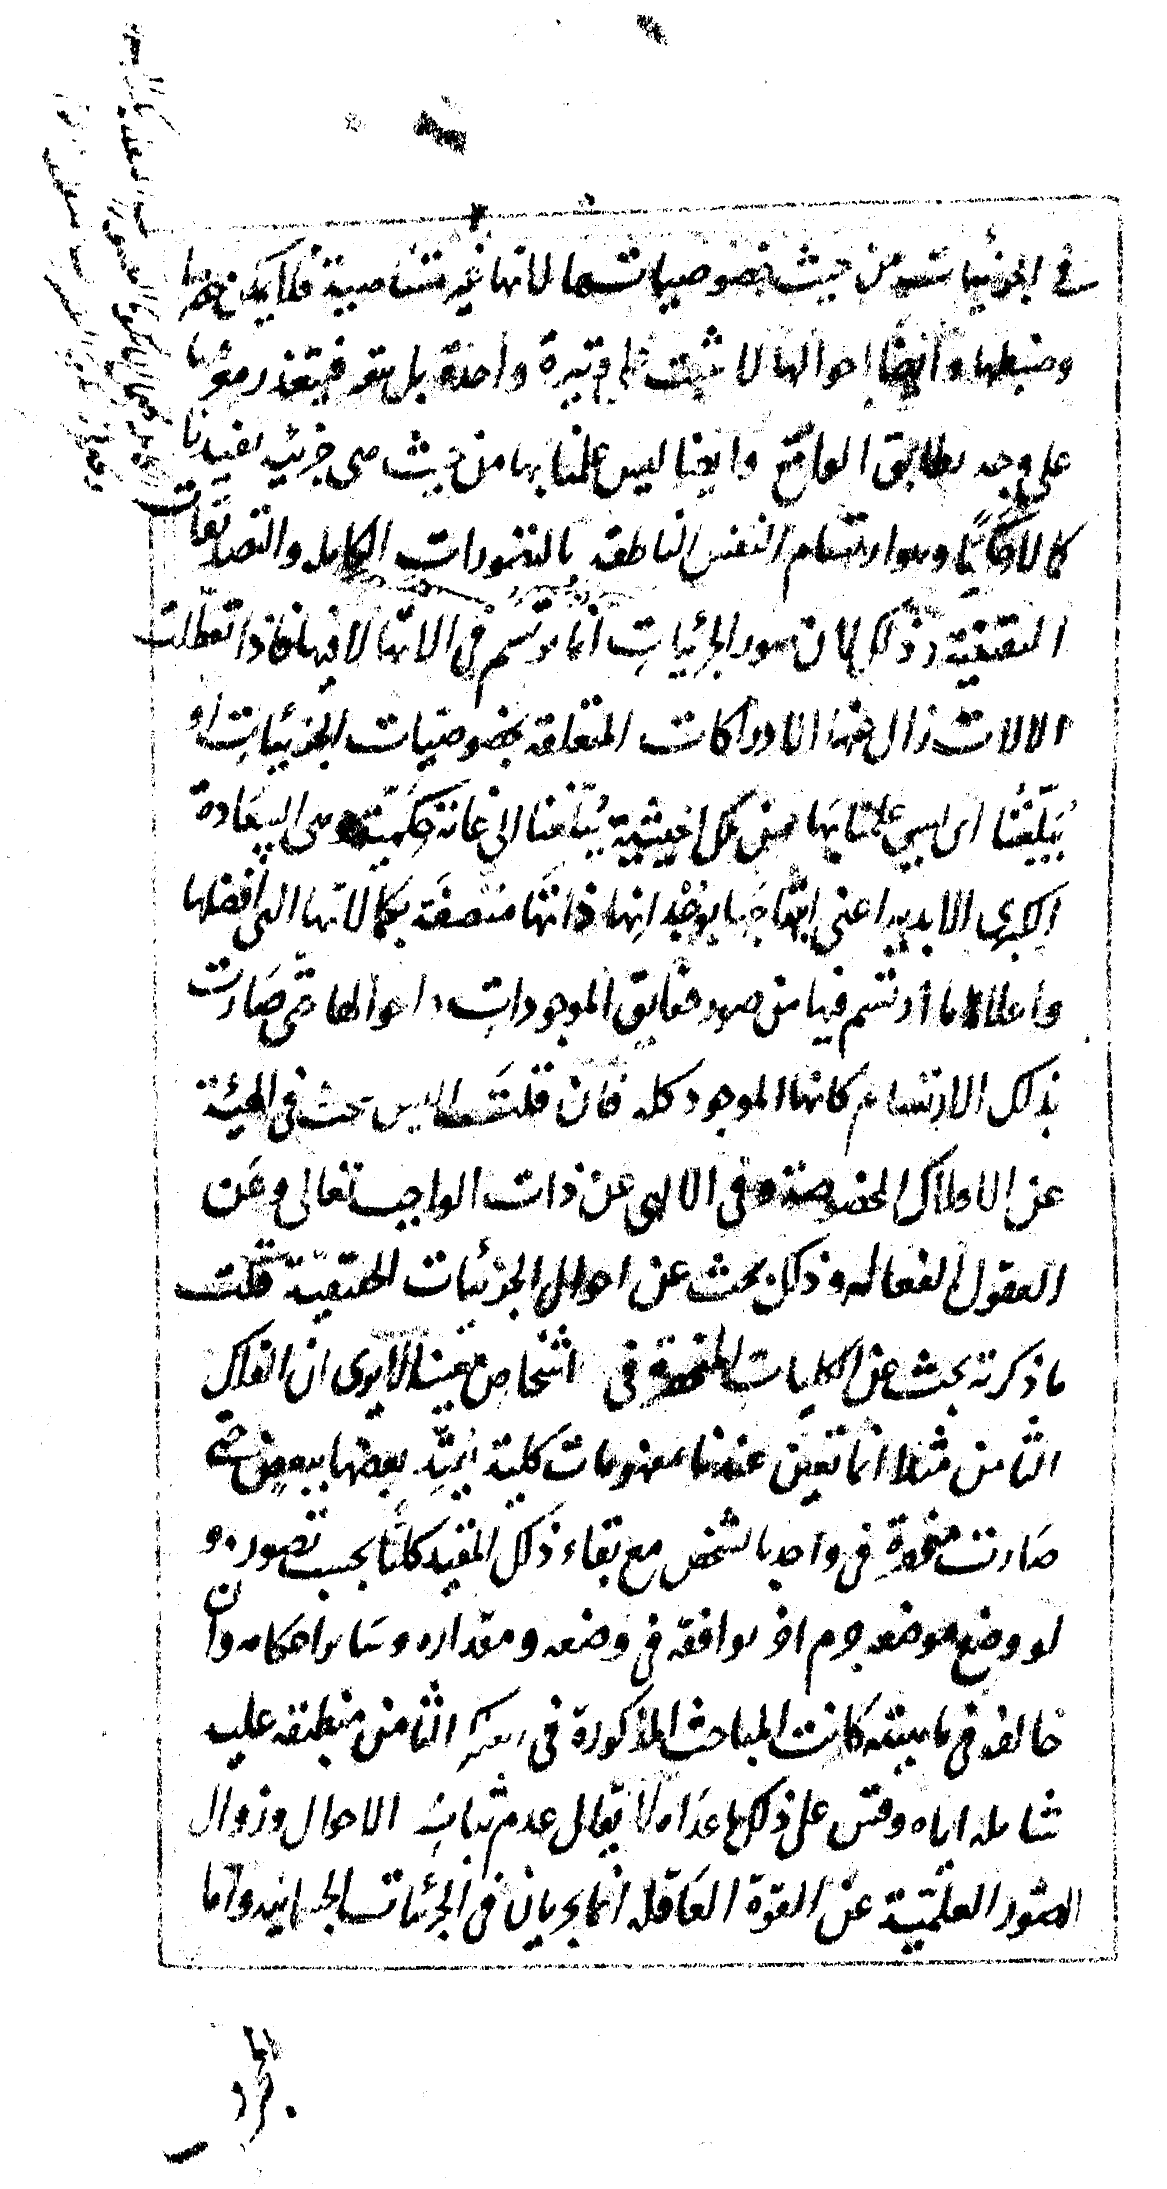 في الجزئيات من حيث خصوصياتها لانها غير متناهية فلا يمكن حصرها
وضبطها وايضا احوالها لا تثبت على وتيرة واحدة بل تتغير فيتعذر معرفتها
على وجه يطابق الواقع وايضا ليس علمنا بها من حيث هي جزئية يفيدنا
كمالا حكميا وهو ارتسام النفس الناطقه بالتصورات الكامله والتصديقات
اليقينية وذلك لان صور الجزئيات انما ترتسم في الاتها لا فيها فاذا تعطلت
الالات زال عنها الادراكات المتعلقه بخصوصيات الجزئيات او
يبلغنا اى ليس علمنا بها من تلك الحيثية يبلغنا الى غاية حكمية وهى السعادة
الكبرى الابديه اعنى ابتهاجها بوجدانها ذاتها متصفة بكمالاتها التي افضلها
واعلاها ما ارتسم فيها من صور حقايق الموجودات واحوالها حتى صارت
بذلك الارتسام كانها الموجود كله فان قلت اليس يبحث في الهيئة
عن الافلاك المخصوصة وفى الالهى عن ذات الواجب تعالى وعن
العقول الفعاله وذلك بحث عن احوال الجزئيات الحقيقية قلت
ما ذكرته بحث عن الكليات المنحصرة فى اشخاص معينة الا يرى ان الفلك
الثامن مثلا انما تعين عندنا بمفهومات كلية قيد بعضها ببعض حتى
صارت منحصرة في واحد بالشخص مع بقاء ذلك المقيد كليا بحسب تصوره و
لو وضع موضعه جرم اخر يوافقه في وضعه ومقداره وساير احكامه وان
خالفه في ماهيته كانت المباحث المذكورة في الثامن منطبقه عليه
شامله اياه وقس على ذلك ما عداه لا يقال عدم ثبات الاحوال وزوال
الصور العلمية عن القوة العاقله انما يجريان في الجزئيات الجسمانيه واما